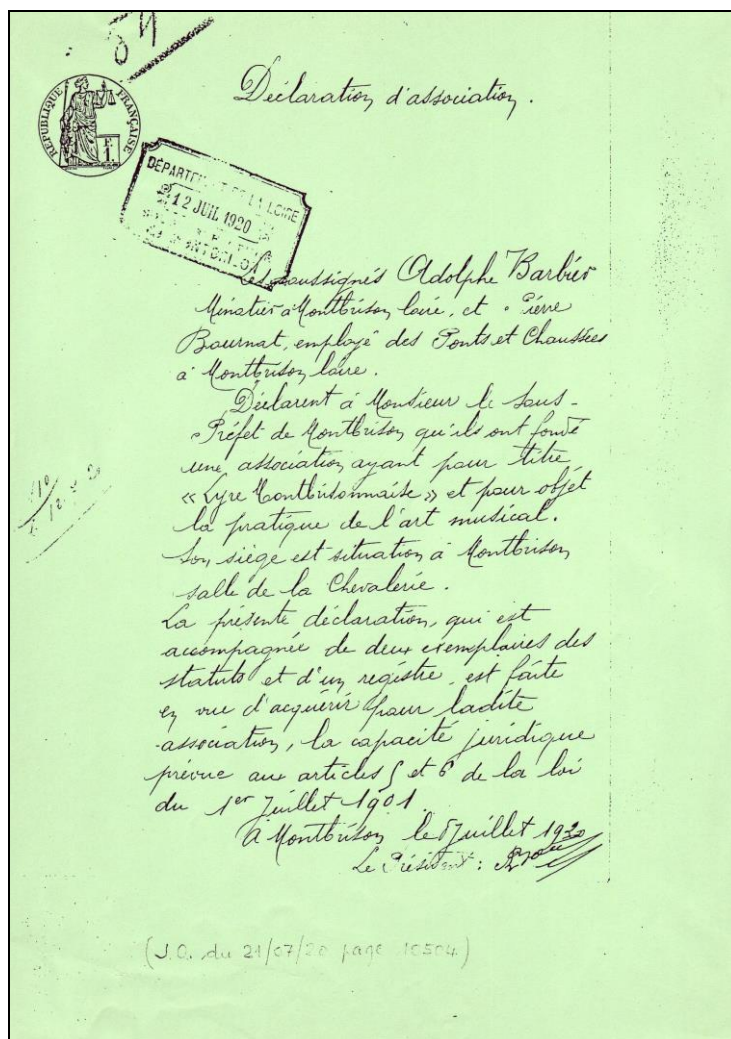 Déclaration d'association.
RÉPUBLIQUE FRANÇAISE
F
1.
DÉPARTEMENT DE LA LOIRE
12 JUIL 1920
Les soussignés Adolphe Barbier
Minotier à Montbrison, Loire, et Pierre
Bournat, employé des Ponts et Chaussées
à Montbrison, Loire.
Déclarent à Monsieur le Sous-
Préfet de Montbrison, qu'ils ont fondé
une association ayant pour titre
« Lyre Montbrisonnaise » et pour objet
la pratique de l'art musical.
Son siège est situation à Montbrison,
salle de la Chevalerie.
La présente déclaration, qui est
accompagnée de deux exemplaires des
statuts et d'un registre, est faite
en vue d'acquérir pour ladite
association, la capacité juridique
prévue aux articles 5 et 6 de la loi
du 1er Juillet 1901.
A Montbrison, le Juillet 1920
Le Président :
(J.O. du 21/07/20 page 10504)